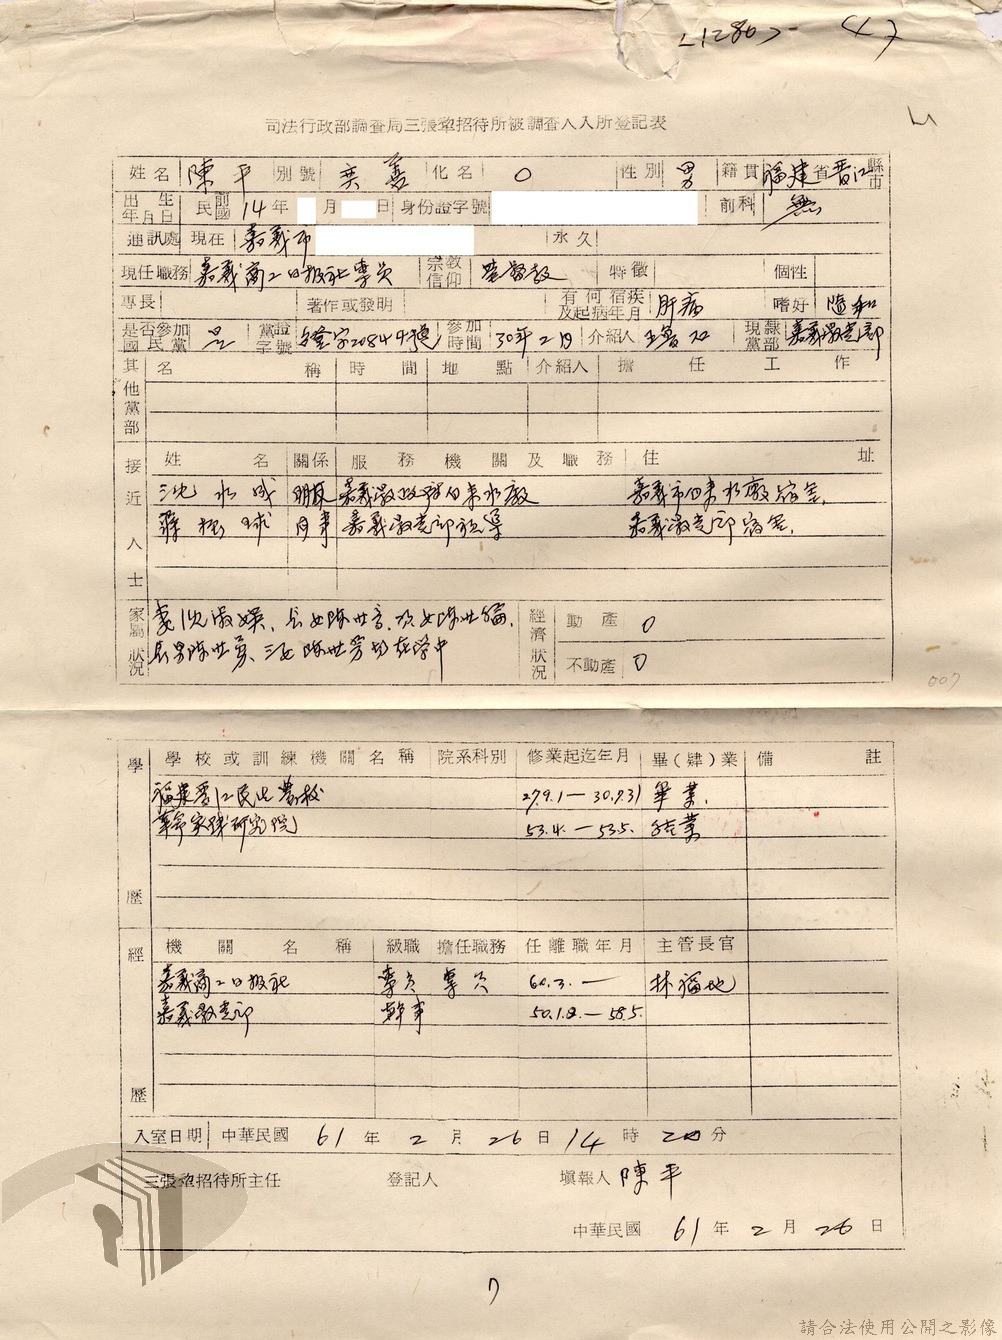 <1286> (4)
司法行政部調查局三張犂招待所被調查人入所登記表
姓名 陳平 別號 奕善 化名 0 性別 男 籍貫 福建省晉江縣市
出生年月日 民前國14年 月 日 身份證字號 前科 無
通訊處 現在 嘉義市 永久
現任職務 嘉義商工日报社專員 宗教信仰 基督教 特徵 個性
專長 著作或發明 有何宿疾及起病年月 肝病 嗜好 隨和
是否參加國民黨 是 黨證字號 字20844號 參加時間 30年2月 介紹人 王 現隸黨部 嘉義縣党部
其他黨部 名稱 時間 地點 介紹人 擔任工作
接近人士 姓名 關係 服務機關及職務 住址
沈水城 朋友 嘉義縣政府自来水廠 嘉義市自来水廠宿舍.
球 同事 嘉義縣党部 嘉義縣党部宿舍.
家屬狀況 妻沈淑娱、長女陈世音、次女陈世倫、
長男陈世勇、三女陈世芳均在学中
經濟狀況 動產 0
不動產 0
007
學歷 學校或訓練機關名稱 院系科別 修業起迄年月 畢(肄)業 備註
福建晋江民生農校 27.9.1—30.7.31 畢業.
革命实践研究院 53.4.—53.5. 结業
經歷 機關名稱 級職 擔任職務 任離職年月 主管長官
嘉義商工日报社 專员 專员 60.3.— 林福地
嘉義縣党部 幹事 50.1.8.—58.5.
入室日期 中華民國 61年2月26日14時20分
三張犂招待所主任 登記人 填報人 陳平
中華民國 61年2月26日
7
請合法使用公開之影像